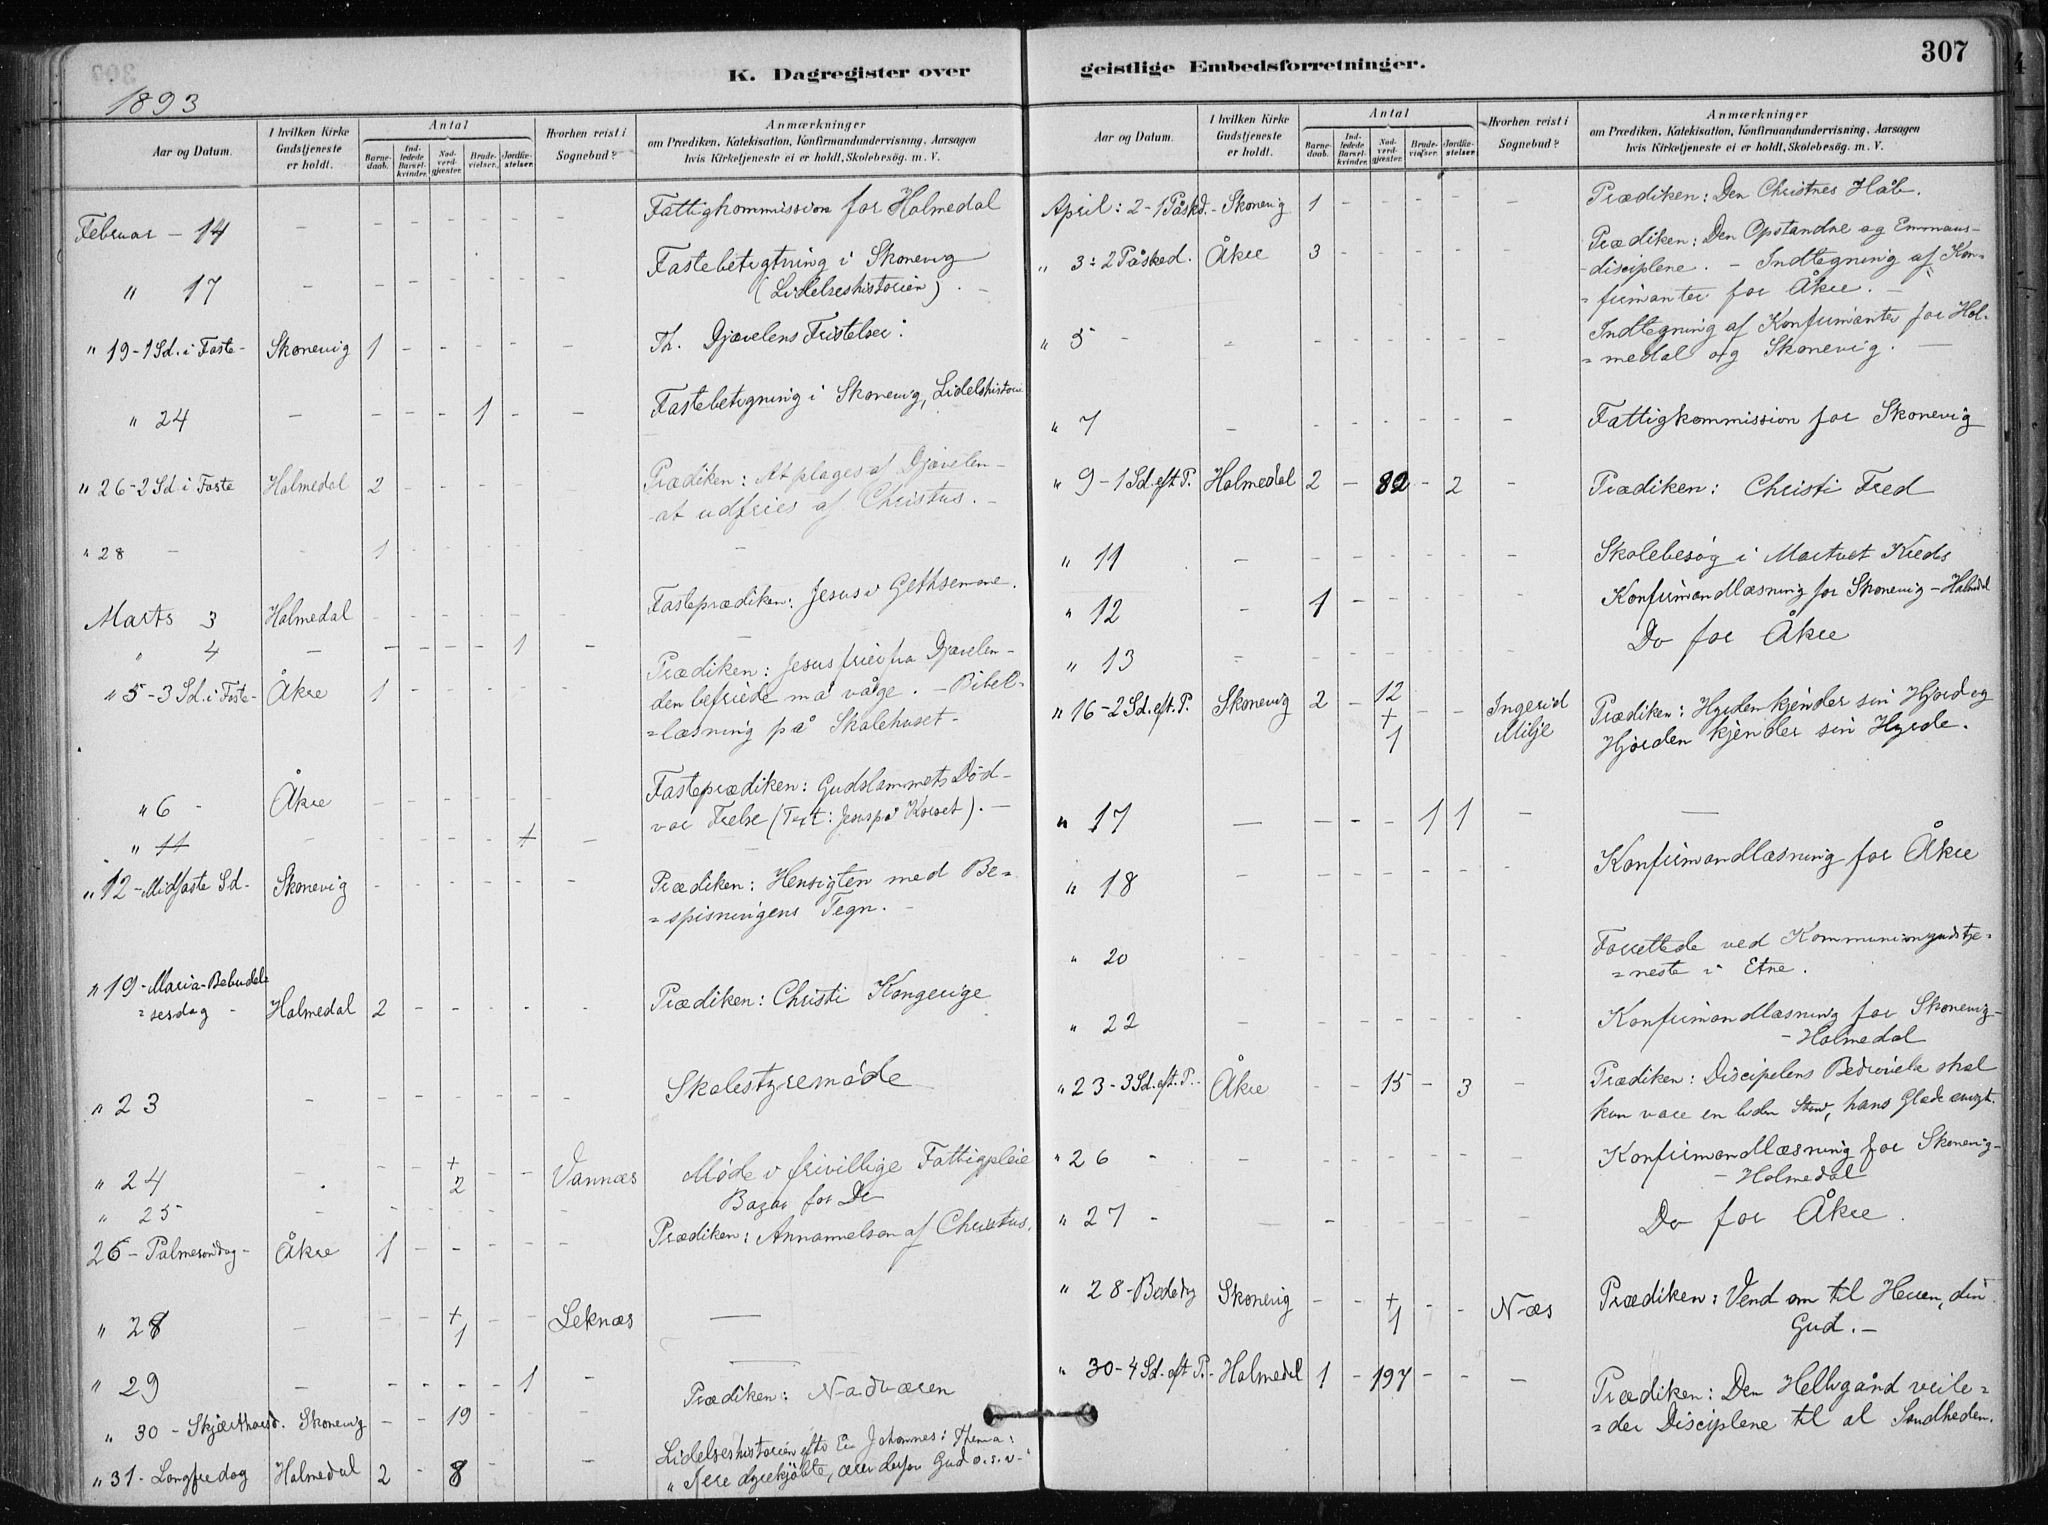 K. Dagregister over
1893
Aar og Datum.
I hvilken Kirke Gudstjeneste er holdt.
Antal
Barnedaab.
Indledede Barselkvinder.
Nadverdgjæster.
Brudevielser.
Jordfæstelser.
Hvorhen reist i Sognebud?
Anmærkninger
om Prædiken, Katekisation, Konfirmandundervisning, Aarsagen
hvis Kirketjeneste ei er holdt, Skolebesøg. m. V.
Februar - 14 - - - - - - - Fattigkommission for Holmedal
" 17 - - - - - - - Fastebetigtning i Skonevig
(Lidelseshistorien). -
" 19 - 1 Sd. i Faste - Skonevig 1 - - - - - Th. Djævelens Fristelser.
" 24 - - - - 1 - - Fastebetigning i Skonevig, Lidelshistorie
" 26 - 2 Sd. i Faste Holmedal 2 - - - - - Prædiken: At plages af Djævelen -
- at udfries af Christus. -
" 28 - 1 - - - - - -
Marts 3 Holmedal - - - - - - Fasteprædiken: Jesus i Gethsemane.
" 4 - - - - - 1 - -
" 5 - 3 Sd. i Faste - Åkre 1 - - - - - Prædiken: Jesus frier fra Djævelen -
den befriede må våge. - Bibel=
=læsning på Skolehuset -
" 6 - Åkre - - - - - - Fasteprædiken: Gudslammets Død -
vor Frelse (Text: Jesus på Korset). -
" 11 - - - - - 1 - -
" 12 - Midfaste Sd - Skonevig - - - - - - Prædiken: Hensigten med Be-
=spisningens Tegn. -
" 19 - Maria-Bebudel=
=sesdag - Holmedal 2 - - - - - Prædiken: Christi Kongerige
" 23 - - - - - - - Skolestyremøde
" 24 - - - + 2 - - Vannæs Møde i frivillige Fattigpleie
" 25 - - - - - - - Bazar for Do
26 - Palmesøndag - Åkre 1 - - - - - Prædiken: Annammelsen af Christus.
" 28 - - - + 1 - - Leknæs -
" 29 - - - - - 1 - -
" 30 - Skjærthorsd. Skonevig - - 19 - - - Prædiken: Nadveren
" 31 - Langfredag Holmedal 2 - 8 - - - Lidelseshistorien efter Ev. Johannes: Thema:
" I ere dyrekjøbte, ærer derfor Gud o.s.v. -"
geistlige Embedsforretninger.
307
Aar og Datum.
I hvilken Kirke Gudstjeneste er holdt.
Antal
Barnedaab.
Indledede Barselkvinder.
Nadverdgjæster.
Brudevielser.
Jordfæstelser.
Hvorhen reist i Sognebud?
Anmærkninger
om Prædiken, Katekisation, Konfirmandundervisning, Aarsagen
hvis Kirketjeneste ei er holdt, Skolebesøg. m. V.
April: 2 - 1 Påskd. - Skonevig 1 - - - - - Prædiken: Den Christnes Håb.
" 3 : 2 Påsked. Åkre 3 - - - - - Prædiken: Den Opstandne og Emmaus-
-disciplene. - Indtegning af Kon=
=firmanter for Åkre. -
" 5 - - - - - - - - Indtegning af Konfirmanter for Hol-
=medal og Skonevig. -
" 7 - - - - - - - Fattigkommission for Skonevig
" 9 - 1 Sd. eft. P. Holmedal 2 - 82 - 2 - Prædiken: Christi Fred
" 11 - - - - - - - Skolebesøg i Martvet Kreds
" 12 - 1 - - - - - Konfirmandlæsning for Skonevig - Holmedal
" 13 - - - - - - - Do for Åkre
" 16 - 2 Sd. eft. P. Skonevig 2 - 12 + 1 - - Ingerid Milje Prædiken: Hyrden kjender sin Hjord og
Hjorden kjender sin Hyrde.
" 17 - - - - 1 1 - -
" 18 - - - - - - - Konfirmandlæsning for Åkre
" 20 - - - - - - - Forrettede ved Kommuniongudstje=
=neste i Etne.
" 22 - - - - - - - Konfirmandlæsning for Skonevig -
- Holmedal
" 23 - 3 Sd. eft. P. - Åkre - - 15 - 3 - Prædiken: Disciplens Bedrøvelse skal
kun være en liden Stund, hans Glæde
" 26 - - - - - - - - Konfirmandlæsning for Skonevig -
- Holmedal
" 27 - - - - - - - - Do for Åkre.
" 28 - Bededag Skonevig - - + 1 - - Næs Prædiken: Vend om til Herren, din
Gud. -
" 30 - 4 Sd. eft. P. - Holmedal 1 - 197 - - - Prædiken: Den Helligånd veile=
=der Disciplene til al Sandheden.